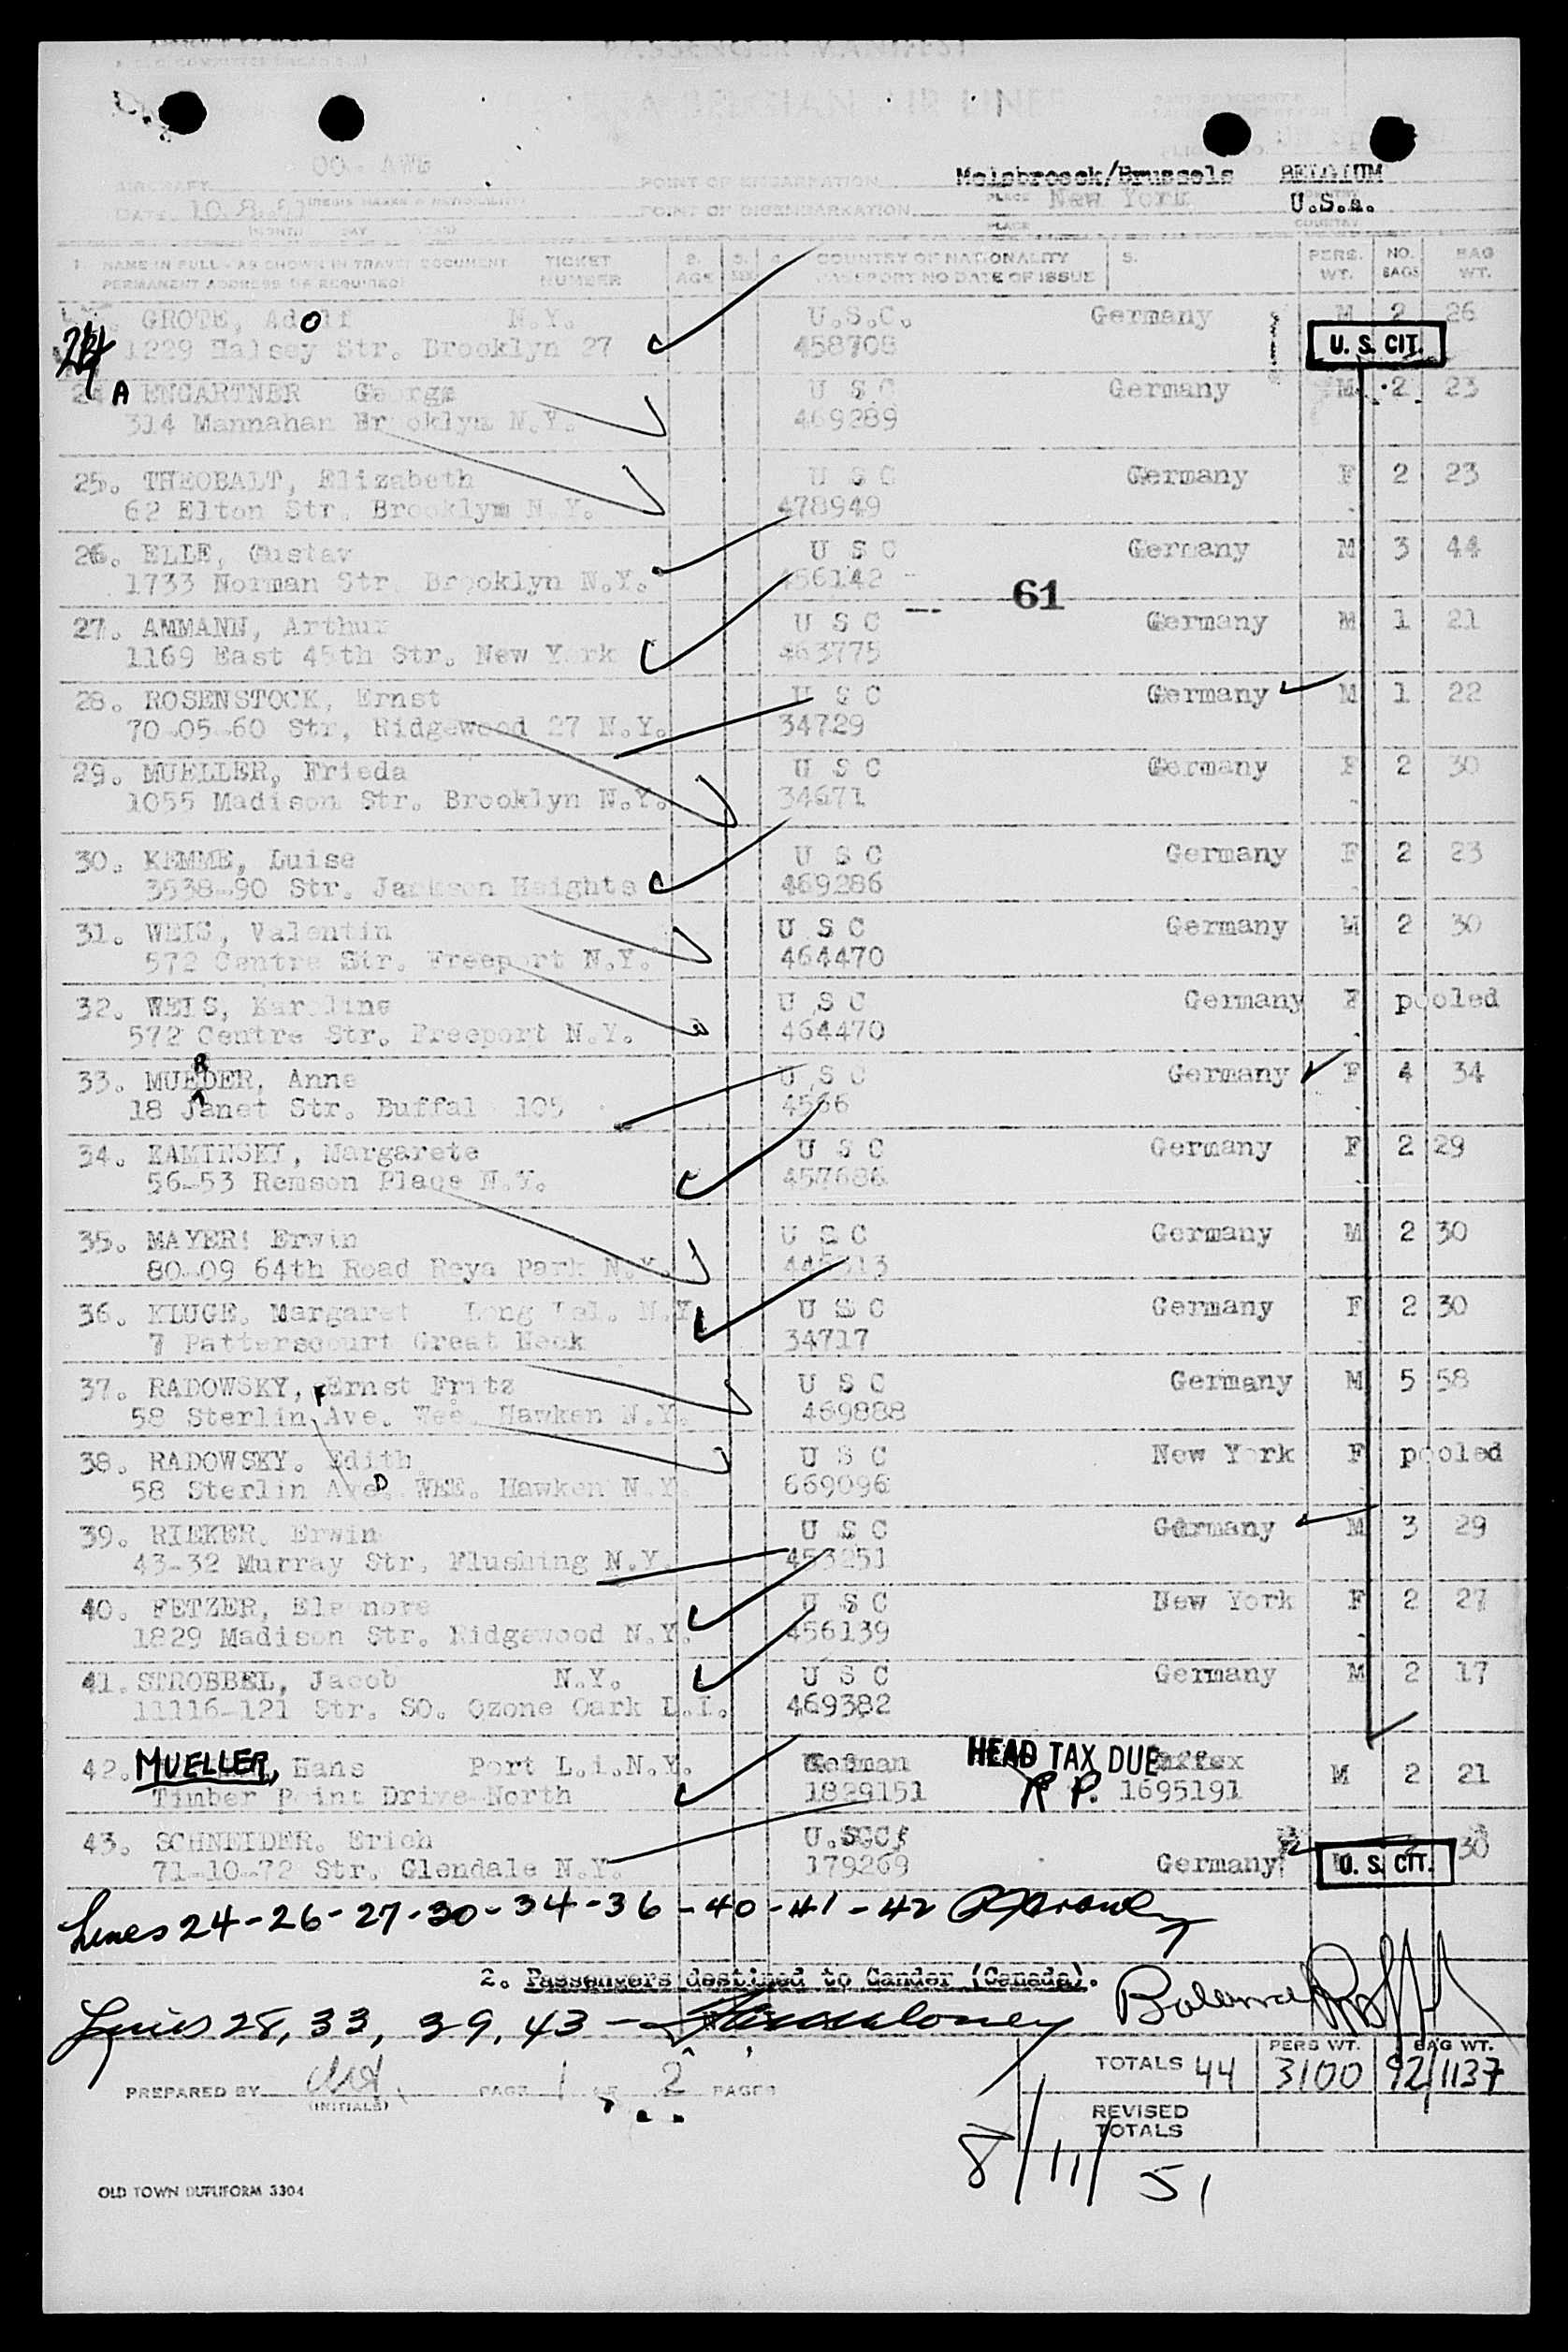 PASSENGER MANIFEST
BELGIAN AIR LINES
AIRCRAFT OO - AW POINT OF EMBARKATION Melsbroeck/Brussels BELGIUM
DATE 10.8.51 POINT OF DISEMBARKATION New York U.S.a.
(MONTH DAY YEAR) PLACE COUNTRY
1 NAME IN FULL - AS SHOWN IN TRAVEL DOCUMENT TICKET 2. 3. 4. COUNTRY OF NATIONALITY 5. PERS. NO. BAG
PERMANENT ADDRESS (IF REQUIRED) NUMBER AGE SEX PASSPORT NO DATE OF ISSUE WT. BAGS WT.
GROTE, Adolf N.Y. U.S.C. Germany M 2 26
24 1229 Halsey Str. Brooklyn 27 458708 U. S. CIT.
24 A ENGARTNER George U S C Germany M 2 23
314 Mannahan Brooklym N.Y. 469289
25. THEOBALT, Elizabeth U S C Germany F 2 23
62 Elton Str. Brooklym N.Y. 478949
26. ELLE, Gustav U S C Germany M 3 44
1733 Norman Str. Brooklyn N.Y. 456142 61
27. AMMANN, Arthur U S C Germany M 1 21
1169 East 45th Str. New York 463775
28. ROSENSTOCK, Ernst U S C Germany M 1 22
70-05-60 Str, Ridgewood 27 N.Y. 34729
29. MUELLER, Frieda U S C Germany F 2 30
1055 Madison Str. Brooklyn N.Y. 34671
30. KEMME, Luise U S C Germany F 2 23
3538-90 Str. Jackson Heights 469286
31. WEIS, Valentin U S C Germany M 2 30
572 Centre Str. Freeport N.Y. 464470
32. WEIS, Karoline U S C Germany F pooled
572 Centre Str. Freeport N.Y. 464470
R
33. MUEDER, Anne U S C Germany F 4 34
18 Janet Str. Buffal 105 4566
34. KAMINSKY, Margarete U S C Germany F 2 29
56-53 Remson Place N.Y. 457686
35. MAYER! Erwin U S C Germany M 2 30
80-09 64th Road Reya Park N.Y.
36. KLUGE, Margaret Long Isl. N.Y. U S C Germany F 2 30
7 Patterscourt Great Neck 34717
37. RADOWSKY, Ernst Fritz U S C Germany M 5 58
58 Sterlin Ave. Wee. Hawken N.Y. 469888
38. RADOWSKY. Edith U S C New York F pooled
58 Sterlin Ave. WEE. Hawken N.Y. 669096
39. RIEKER, Erwin U S C Germany M 3 29
43-32 Murray Str, Flushing N.Y. 453251
40. FETZER, Eleonore U S C New York F 2 27
1829 Madison Str. Ridgewood N.Y. 456139
41. STROBBEL, Jacob N.Y. U S C Germany M 2 17
11116-121 Str. SO. Ozone Oark L.I. 469382
42. MUELLER, Hans Port L.i.N.Y. German HEAD TAX DUE M 2 21
Timber Point Drive North 1829151 R P. 1695191
43. SCHNEIDER. Erich U.S.C. 30
71-10-72 Str. Glendale N.Y. 179269 Germany U. S. CIT.
Lines 24-26-27-30-34-36-40-41-42
2. Passengers destined to Gander (Canada).
Lines 28, 33, 39, 43 -
PERS WT. BAG WT.
TOTALS 44 3100 92/1137
PREPARED BY PAGE 1 OF 2 PAGES
(INITIALS)
REVISED
TOTALS
8/11/51
OLD TOWN DUPLIFORM 3304